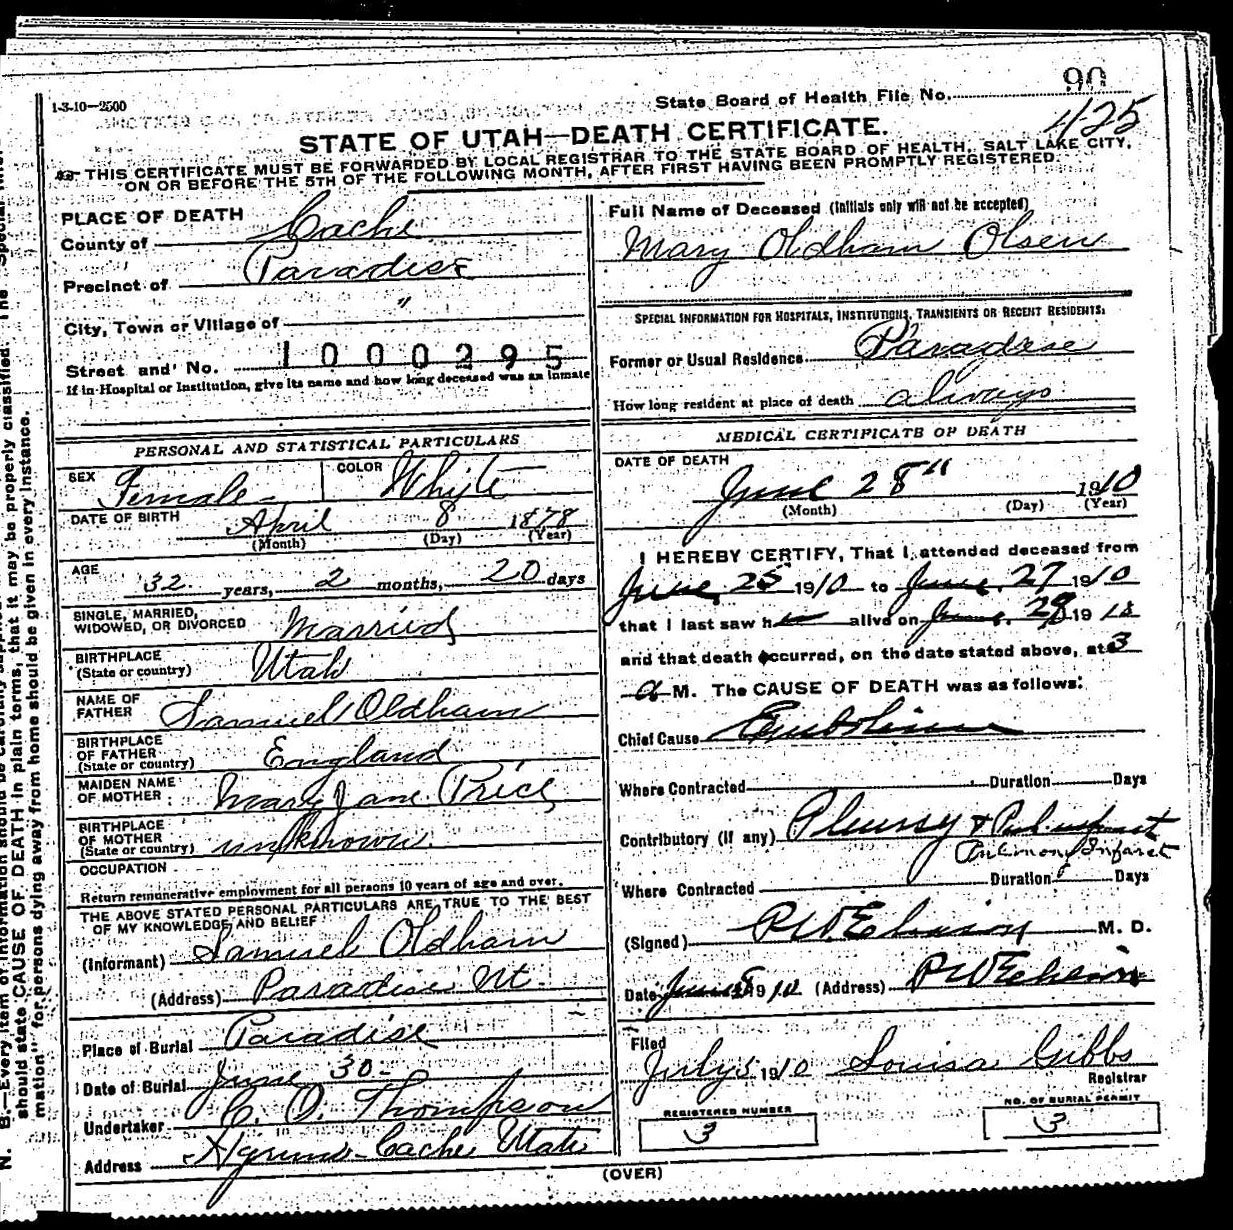 1-3-10—2500
State Board of Health File No. 90
425
STATE OF UTAH—DEATH CERTIFICATE.
THIS CERTIFICATE MUST BE FORWARDED BY LOCAL REGISTRAR TO THE STATE BOARD OF HEALTH, SALT LAKE CITY,
ON OR BEFORE THE 5TH OF THE FOLLOWING MONTH, AFTER FIRST HAVING BEEN PROMPTLY REGISTERED.
PLACE OF DEATH
County of Cache
Precinct of Paradise
City, Town or Village of "
Street and No. 1000295
If in Hospital or Institution, give its name and how long deceased was an inmate
PERSONAL AND STATISTICAL PARTICULARS
SEX Female
COLOR Whyte
DATE OF BIRTH April 8 1878
(Month) (Day) (Year)
AGE
32 years, 2 months, 20 days
SINGLE, MARRIED,
WIDOWED, OR DIVORCED Married
BIRTHPLACE
(State or country) Utah
NAME OF
FATHER Samuel Oldham
BIRTHPLACE
OF FATHER
(State or country) England
MAIDEN NAME
OF MOTHER Mary Jane Price
BIRTHPLACE
OF MOTHER
(State or country) unknown
OCCUPATION
Return remunerative employment for all persons 10 years of age and over.
THE ABOVE STATED PERSONAL PARTICULARS ARE TRUE TO THE BEST
OF MY KNOWLEDGE AND BELIEF
(Informant) Samuel Oldham
(Address) Paradise Ut.
Place of Burial Paradise
Date of Burial June 30-
Undertaker C. O. Thompson
Address Hyrum Cache Utah
Full Name of Deceased (Initials only will not be accepted)
Mary Oldham Olsen
SPECIAL INFORMATION FOR HOSPITALS, INSTITUTIONS, TRANSIENTS OR RECENT RESIDENTS:
Former or Usual Residence Paradise
How long resident at place of death always
MEDICAL CERTIFICATE OF DEATH
DATE OF DEATH
June 28" 1910
(Month) (Day) (Year)
I HEREBY CERTIFY, That I attended deceased from
June 25 1910 to June 27 1910
that I last saw h alive on June 28 1910
and that death occurred, on the date stated above, at 3
a M. The CAUSE OF DEATH was as follows:
Chief Cause Embolism
Where Contracted Duration Days
Contributory (if any) Pleurisy &
Pulmonary Infarct
Where Contracted Duration Days
(Signed) M. D.
Date 1910 (Address)
Filed
July 5 1910 Louisa Gibbs
Registrar
REGISTERED NUMBER
3
NO. OF BURIAL PERMIT
3
(OVER)
N. B.—Every item of information should be
should state CAUSE OF DEATH in plain terms, that it may be properly classified. The "Special
mation" for persons dying away from home should be given in every instance.